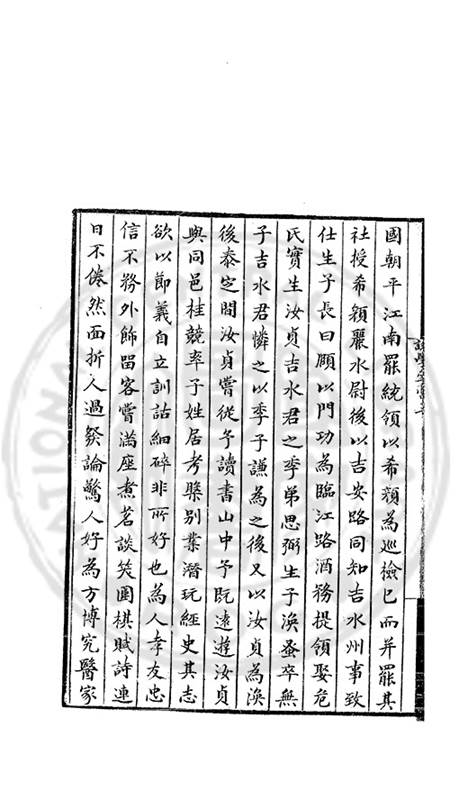 國朝平江南罷統領以希穎為巡檢已而并罷其
社授希穎麗水尉後以吉安路同知吉水州事致
仕生子長曰願以門功為臨江路酒務提領娶危
氏實生汝貞吉水君之季弟思弼生子渙蚤卒無
子吉水君憐之以季子謙為之後又以汝貞為渙
後泰定間汝貞嘗從予讀書山中予既遠遊汝貞
與同邑桂競率子姓居考槃別業潛玩經史其志
欲以節義自立訓詁細碎非所好也為人孝友忠
信不務外飾留客嘗滿座煮茗談笑圍棋賦詩連
日不倦然面折人過發論驚人好為方博究醫家